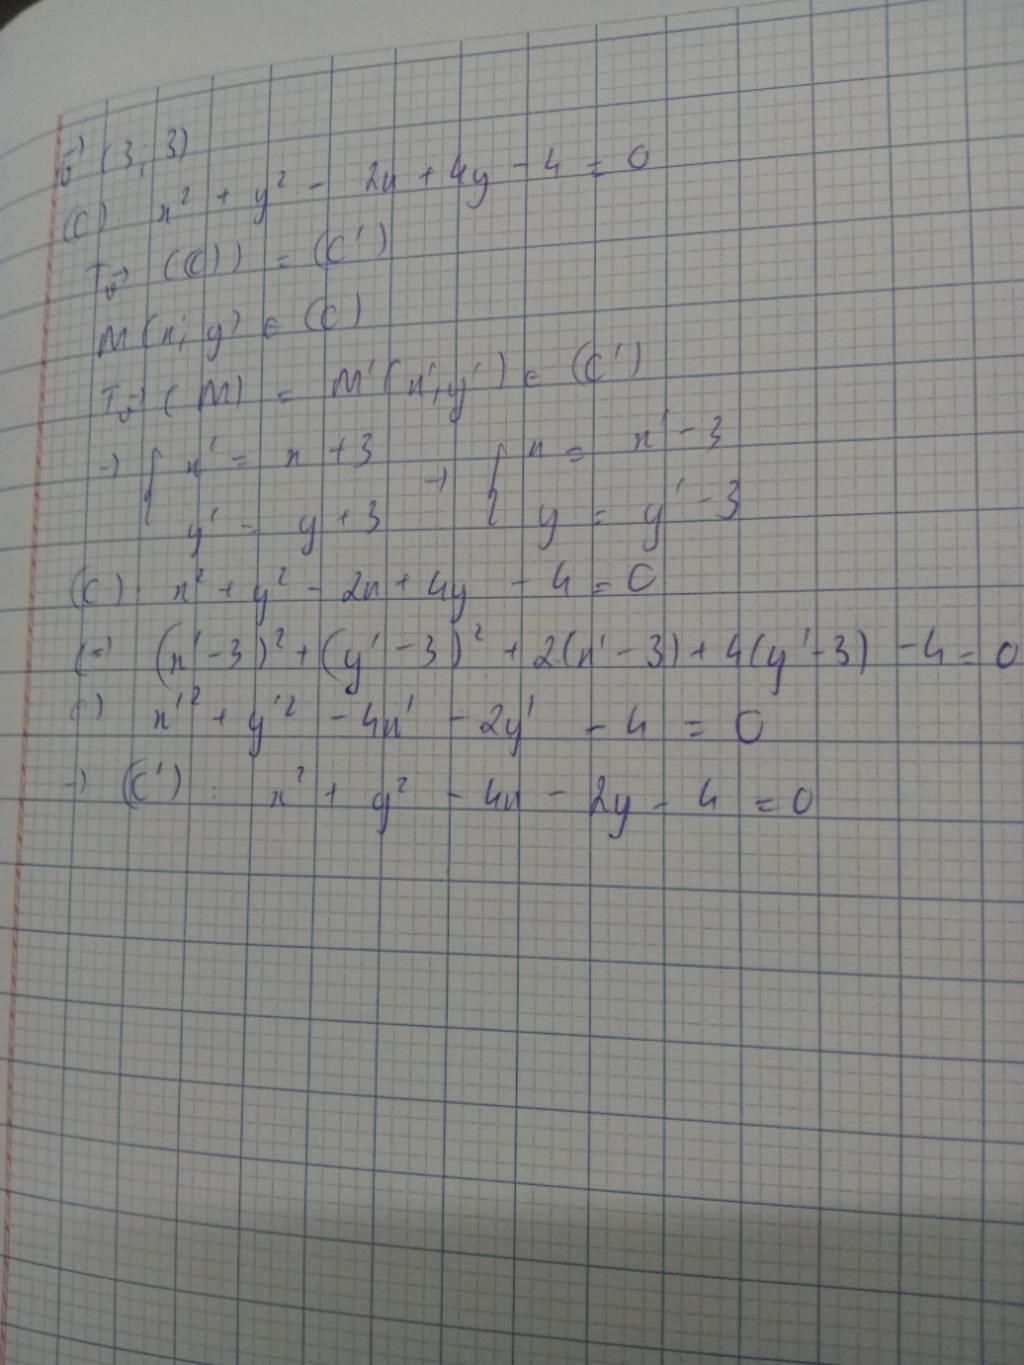 v⃗ (3; 3)
(C): x² + y² - 2x + 4y - 4 = 0
T_v⃗ ((C)) = (C')
M(x; y) ∈ (C)
T_v⃗ (M) = M'(x'; y') ∈ (C')
→ { x' = x + 3 → { x = x' - 3
y' = y + 3 y = y' - 3
(C): x² + y² - 2x + 4y - 4 = 0
(=) (x' - 3)² + (y' - 3)² + 2(x' - 3) + 4(y' - 3) - 4 = 0
(=) x'² + y'² - 4x' - 2y' - 4 = 0
→ (C'): x² + y² - 4x - 2y - 4 = 0